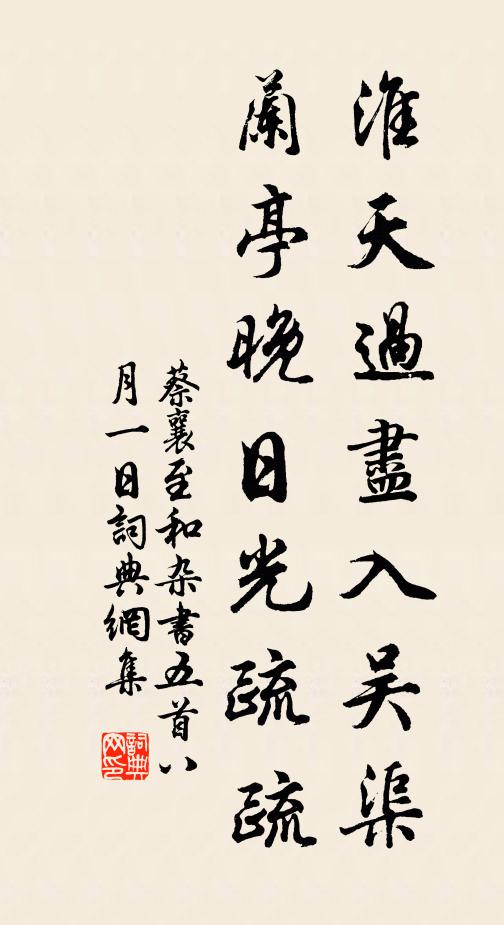 淮天過盡入吴渠
蘭亭晚日光疏疏
蔡襄至和杂書五首八
月一日詞典網集
詞典网印